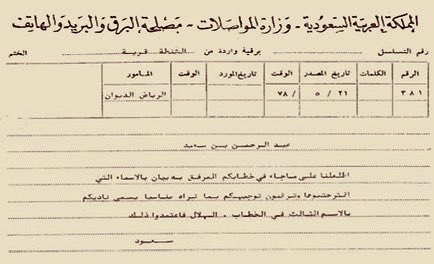 المملكة العربية السعودية - وزارة المواصلات - مصلحة البرق والبريد والهاتف
رقم التسلسل برقية واردة من النقطة قرية الختم
الرقم الكلمات تاريخ المصدر الوقت تاريخ المورد الوقت المأمور
٣٨١ ٢١ / ٥ / ٧٨ الرياض الديوان
عبد الرحمن بن سعد
اطلعنا على ماجاء في خطابكم المرفق به بيان بالاسماء التي
اقترحتموها وترغبون توجيهكم بما نراه مناسبا يسمى ناديكم
بالاسم الثالث في الخطاب . الهلال فاعتمدوا ذلك
سعود